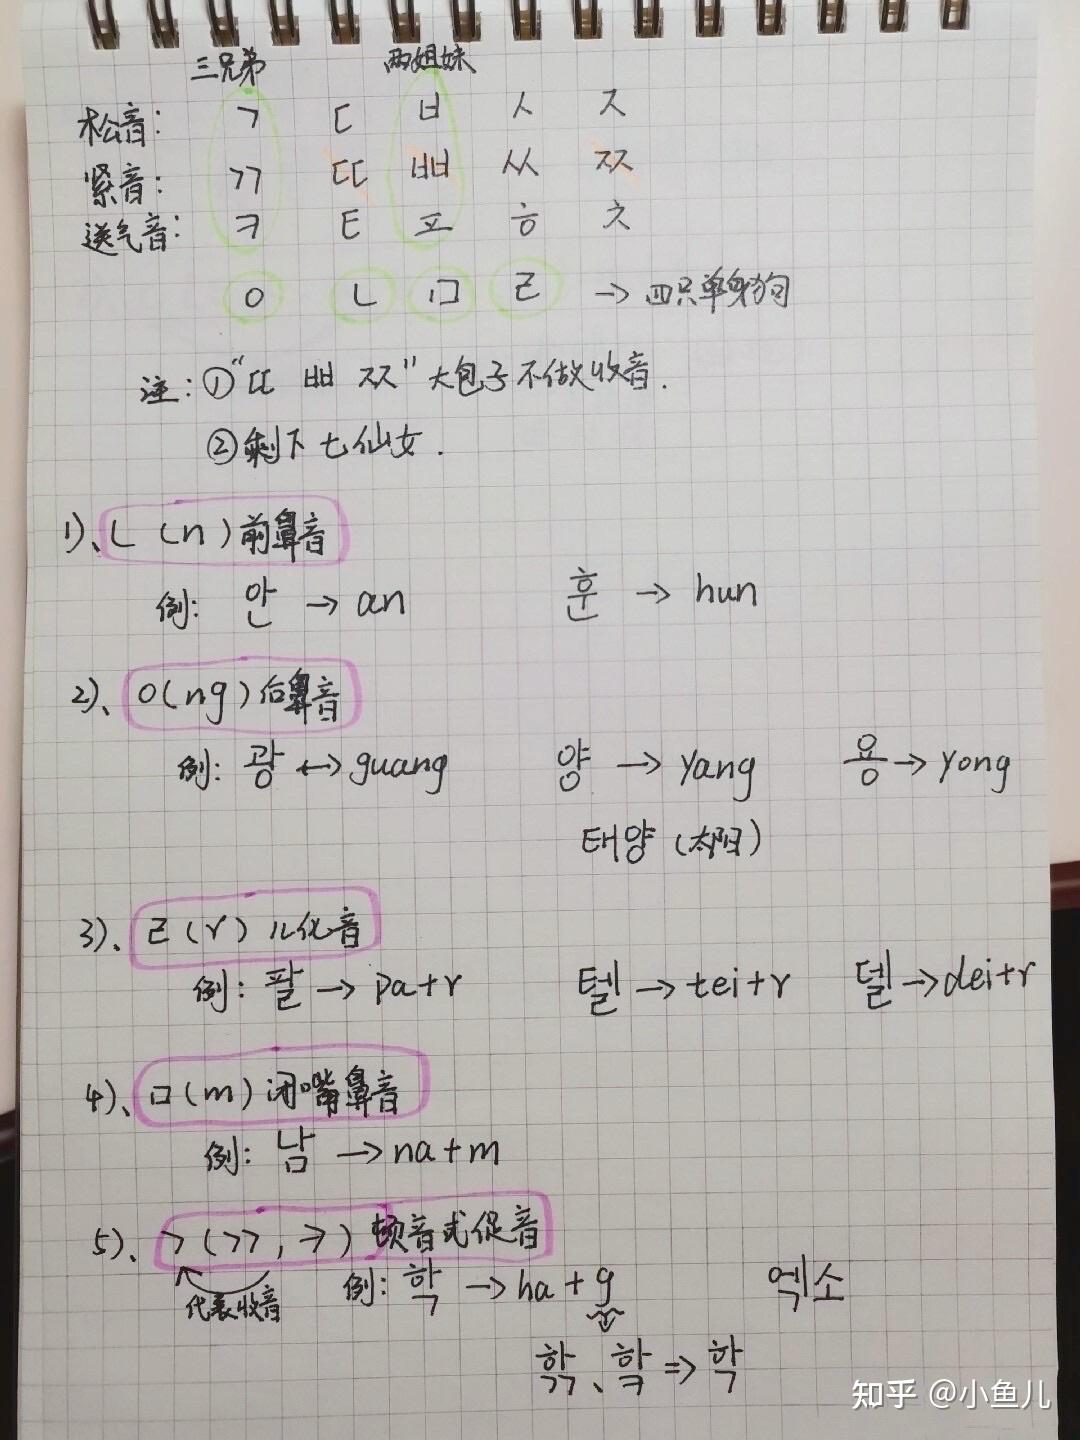 三兄弟 两姐妹
松音: ㄱ ㄷ ㅂ ㅅ ㅈ
紧音: ㄲ ㄸ ㅃ ㅆ ㅉ
送气音: ㅋ ㅌ ㅍ ㅎ ㅊ
ㅇ ㄴ ㅁ ㄹ → 四只单身狗
注: ①“ㄸ ㅃ ㅉ”大包子不做收音.
②剩下七仙女.
1)、ㄴ (n) 前鼻音
例: 안 → an 훈 → hun
2)、ㅇ(ng) 后鼻音
例: 광 ↔ guang 양 → yang 용 → yong
태양 (太阳)
3)、ㄹ(r) 儿化音
例: 팔 → pa+r 텔 → tei+r 델 → dei+r
4)、ㅁ(m) 闭嘴鼻音
例: 남 → na+m
5)、ㄱ(ㄲ,ㅋ) 顿音式促音
代表收音 例: 학 → ha+g 엑소
핚、핰 ⇒ 학
知乎 @小鱼儿